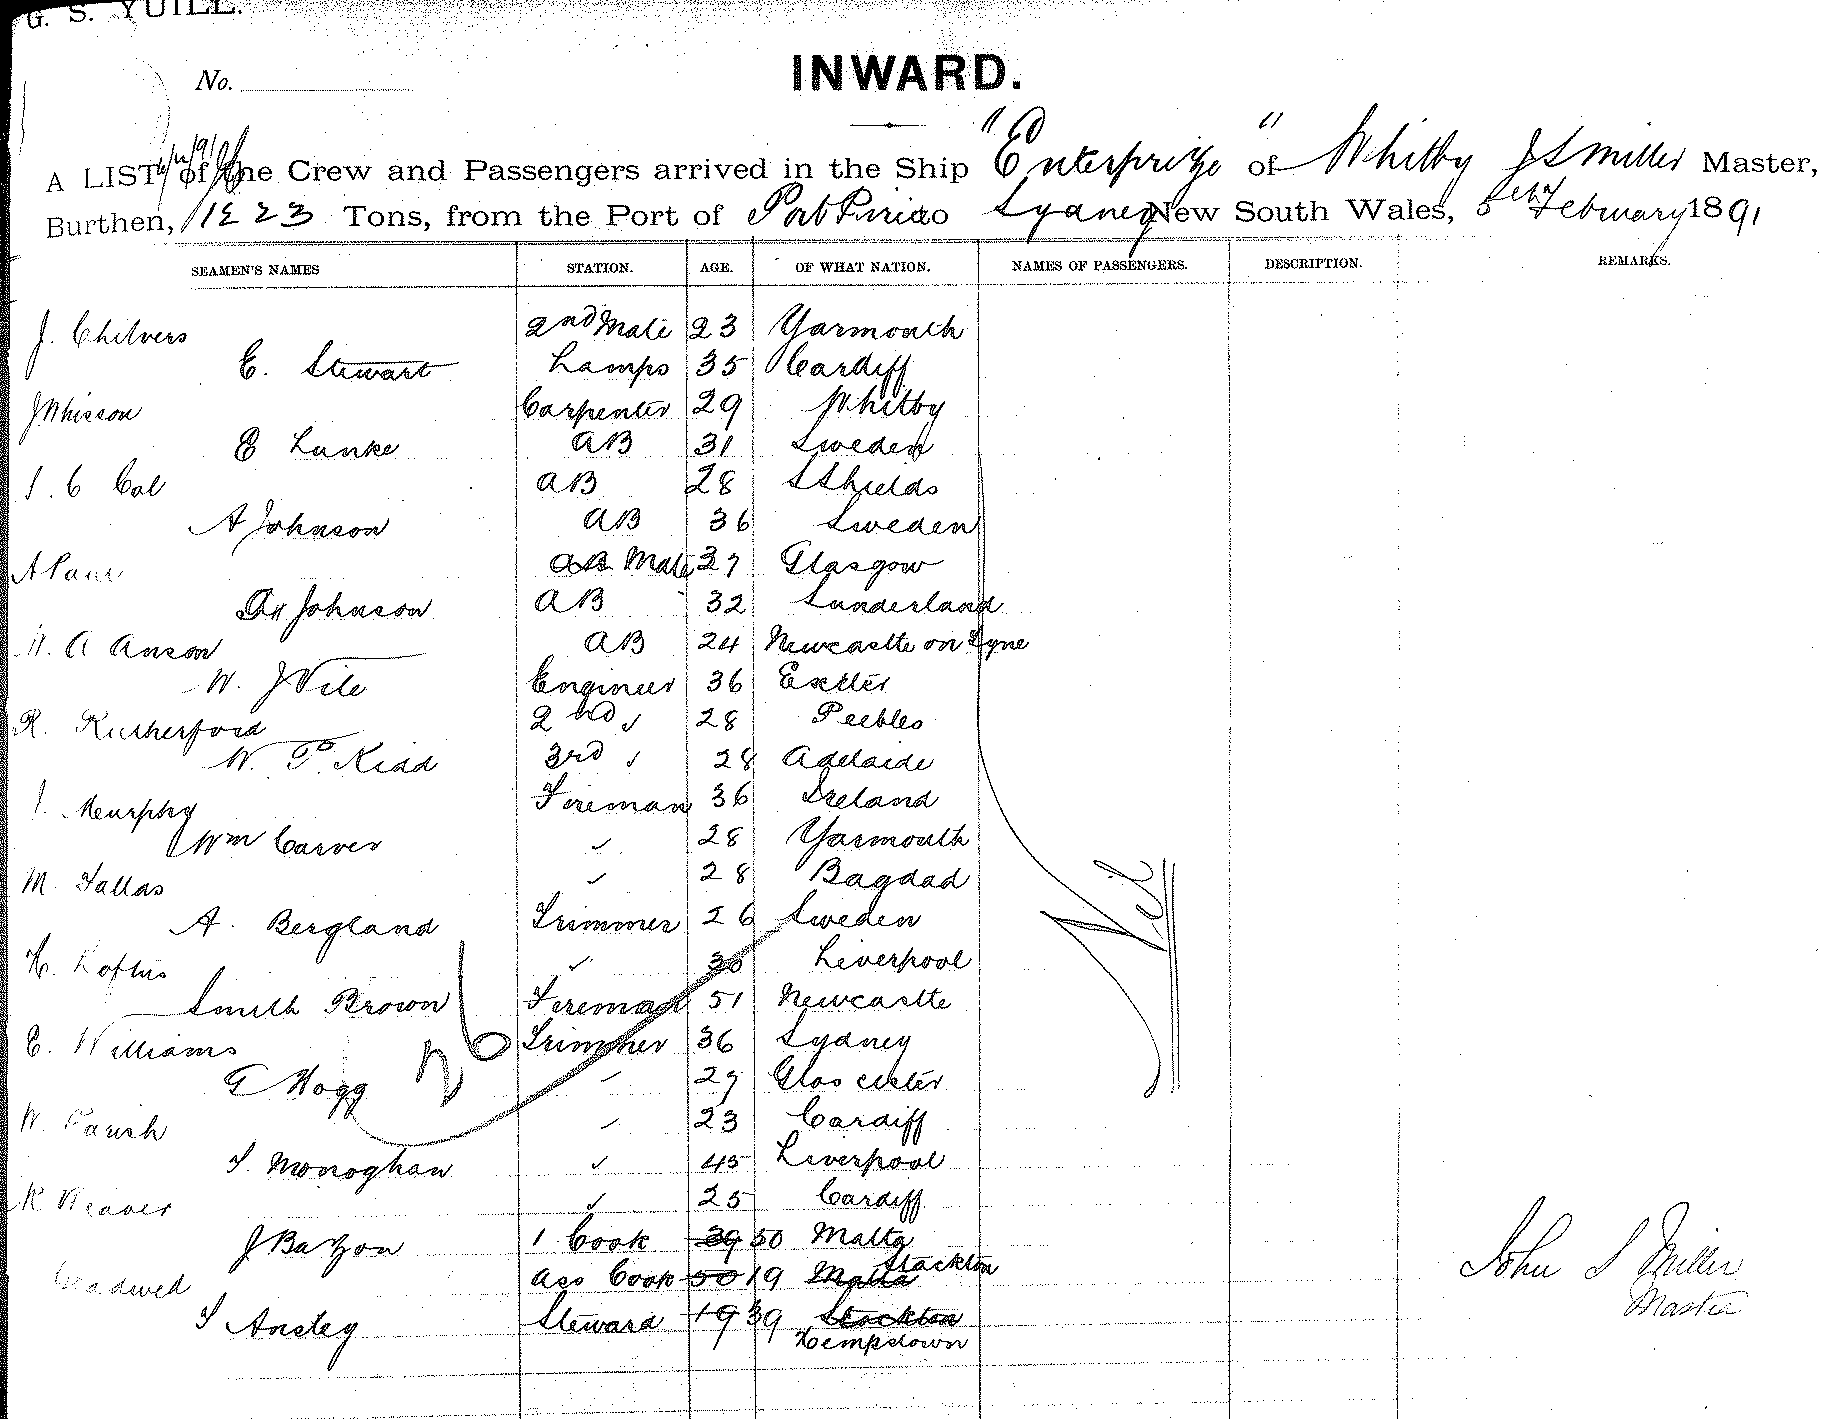 G. S. YUILL.
INWARD.
No.
A LIST of the Crew and Passengers arrived in the Ship "Enterprize" of Whitby J S Miller Master,
Burthen, 1823 Tons, from the Port of Port Pirie to Sydney New South Wales, 5th February 1891
SEAMEN'S NAMES STATION. AGE. OF WHAT NATION. NAMES OF PASSENGERS. DESCRIPTION. REMARKS.
J. Chilvers 2nd Mate 23 Yarmouth
E. Stewart Lamps 35 Cardiff
J Whisson Carpenter 29 Whitby
E Lunke AB 31 Sweden
C AB 28 S Shields
A Johnson AB 36 Sweden
A AB Mate 37 Glasgow
Johnson AB 32 Sunderland
A Anson AB 24 Newcastle on Tyne
W. J Vile Engineer 36 Exeter
R. Rutherford 2nd 28 Peebles
W. P. Kidd 3rd 28 Adelaide
Murphy Fireman 36 Ireland
Wm Carver ✓ 28 Yarmouth
M. Fallas ✓ 28 Bagdad
A. Bergland Trimmer 26 Sweden
H. Loftus ✓ 30 Liverpool
Smith Brown Fireman 51 Newcastle
E. Williams Trimmer 36 Sydney
G Hogg ✓ 27 Gloscester
W. Parish ✓ 23 Cardiff
T. Monoghan ✓ 45 Liverpool
R Weaver ✓ 25 Cardiff
J Batzon 1 Cook 39 50 Malta
Ass Cook 50 19 Malta Stockton
T Ansley Steward 19 39 Stockton
Hempstown
Nil
26
John S Miller
Master